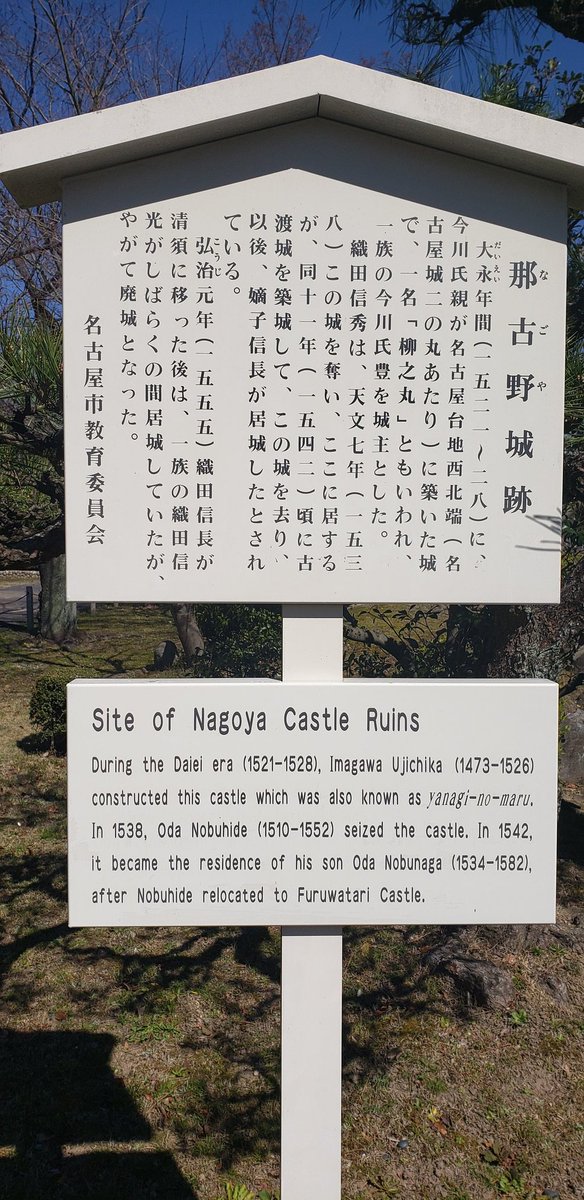 那古野城跡
なごや
大永年間(一五二一〜二八)に、
だいえい
今川氏親が名古屋台地西北端(名
古屋城二の丸あたり)に築いた城
で、一名「柳之丸」ともいわれ、
一族の今川氏豊を城主とした。
織田信秀は、天文七年(一五三
八)この城を奪い、ここに居する
が、同十一年(一五四二)頃に古
渡城を築城して、この城を去り、
以後、嫡子信長が居城したとされ
ている。
弘治元年(一五五五)織田信長が
こうじ
清須に移った後は、一族の織田信
光がしばらくの間居城していたが、
やがて廃城となった。
名古屋市教育委員会
Site of Nagoya Castle Ruins
During the Daiei era (1521-1528), Imagawa Ujichika (1473-1526)
constructed this castle which was also known as yanagi-no-maru.
In 1538, Oda Nobuhide (1510-1552) seized the castle. In 1542,
it became the residence of his son Oda Nobunaga (1534-1582),
after Nobuhide relocated to Furuwatari Castle.